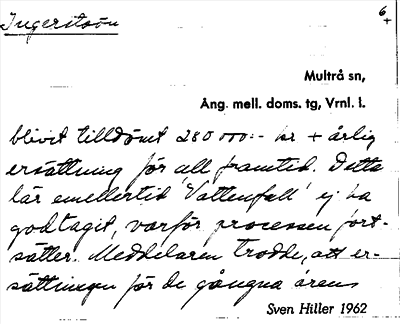 Ingeritsön
6
+
Multrå sn,
Ång. mell. doms. tg, Vrnl. l.
blivit tilldömt 280 000:- kr + årlig
ersättning för all framtid. Detta
lär emellertid 'Vattenfall' ej ha
godtagit, varför processen fort-
sätter. Meddelaren trodde, att er-
sättningen för de gångna årens
Sven Hiller 1962